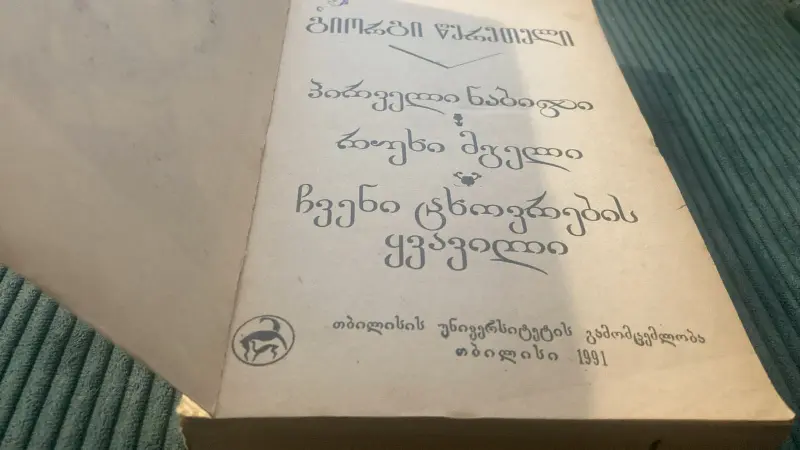 გიორგი წერეთელი
პირველი ნაბიჯი
რუხი მგელი
ჩვენი ცხოვრების
ყვავილი
თბილისის უნივერსიტეტის გამომცემლობა
თბილისი 1991